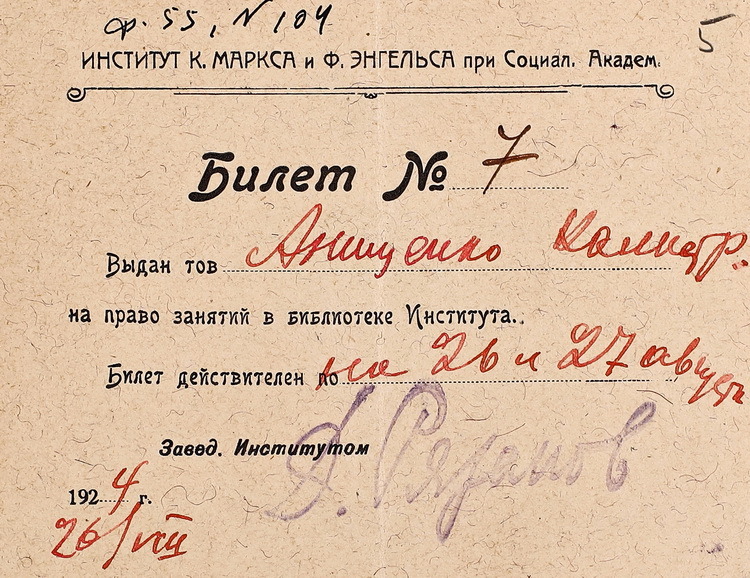 ф. 55, N 104
5
ИНСТИТУТ К. МАРКСА и Ф. ЭНГЕЛЬСА при Социал. Академ.
Билет № 7
Выдан тов Анищенко Калистр.
на право занятий в библиотеке Института.
Билет действителен по на 26 и 27 август
Завед. Институтом Д. Рязанов
1924 г.
26/VIII